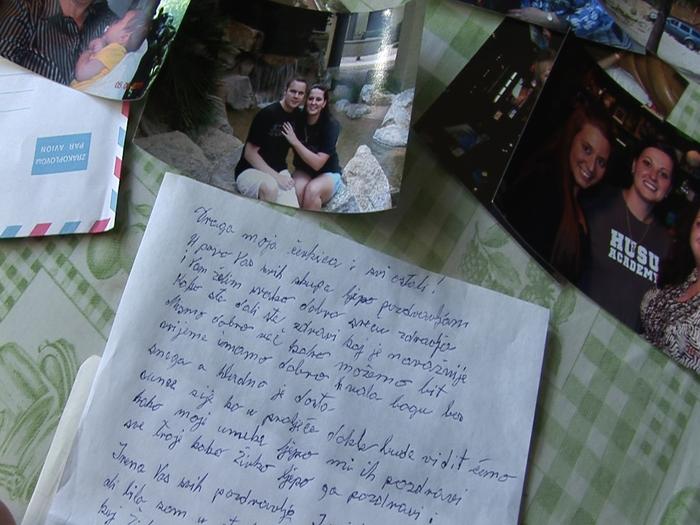 ZRAKOPLOVOM
PAR AVION
HUSU
ACADEMY
Draga moja ćerkica i svi ostali!
U prvo Vas svih skupa lijepo pozdravljam
i Vam želim svako dobro sreću zdravlje
Kako ste dali ste zdravi koj je najvažnije
Mi smo dobro već kako možemo bit
vrijeme imamo dobro hvala bogu bez
snega a hladno je dosta
sunce sije ko u proljeće dokle bude vidit ćemo
kako moji umeka lijepo mi ih pozdravi
sve troji kako Živko lijepo ga pozdravi i
Irena Vas svih pozdravlja
ali bila sam u